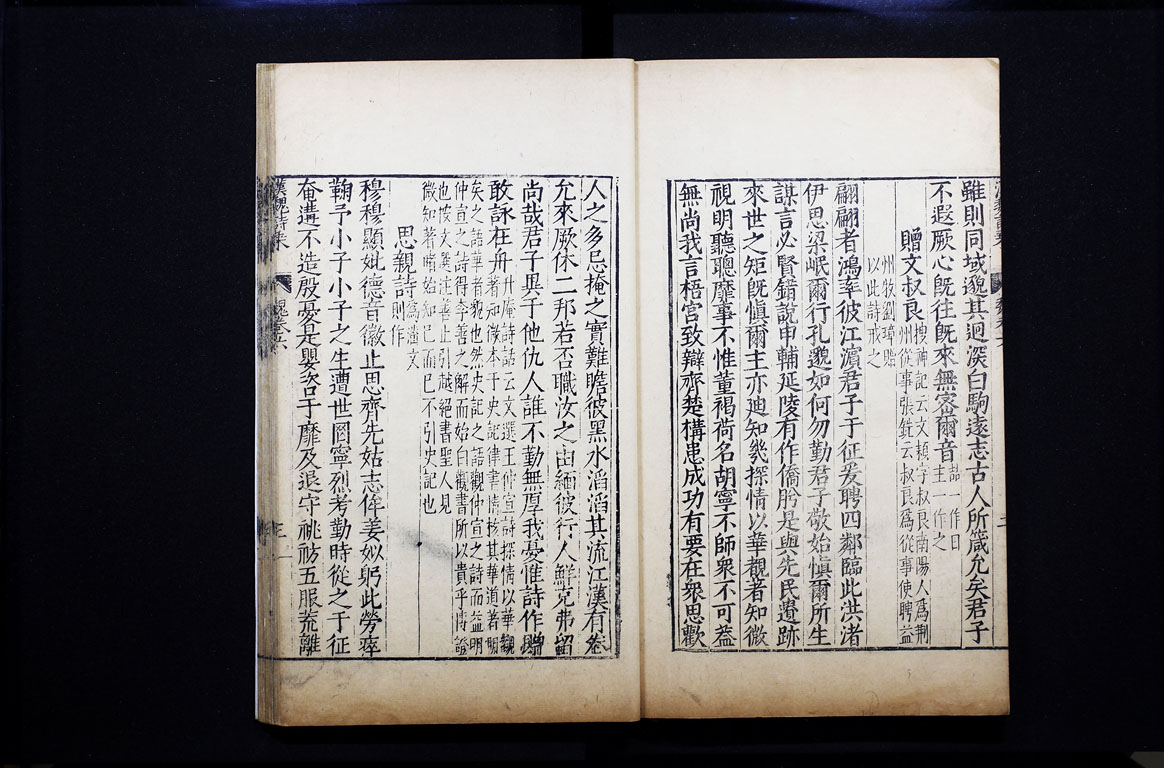 雖則同域邈其迥深白駒遠志古人所箴允矣君子
不遐厥心既往既來無密爾音喆一作日主一作之
贈文叔良搜神記云文穎字叔良南陽人爲荆
州從事張銑云叔良爲從事使聘益
州牧劉璋貽
以此詩戒之
翩翩者鴻率彼江濵君子于征爰聘四鄰臨此洪渚
伊思梁岷爾行孔邈如何勿勤君子敬始慎爾所主
謀言必賢錯說申輔延陵有作僑肸是與先民遺跡
來世之矩既慎爾主亦迪知幾探情以華覩著知微
視明聽聰靡事不惟董褐荷名胡寧不師衆不可蓋
無尚我言梧宮致辯齊楚構患成功有要在衆思歡
人之多忌掩之實難瞻彼黑水滔滔其流江漢有卷
允來厥休二邦若否職汝之由緬彼行人鮮克弗留
尚哉君子異于他仇人誰不勤無厚我憂惟詩作贈
敢詠在舟升庵詩話云文選王仲宣詩探情以華覩
著知微本于史記律書情核其華道著明
矣之語華者貌也然史記之語觀仲宣之詩而益明
仲宣之詩得李善之解而始白觀書所以貴乎博證
也惟文選注善止引越絕書聖人見
微知著睹始知已而已不引史記也
思親詩爲潘文
則作
穆穆顯妣德音徽止思齊先姑志侔姜姒躬此勞瘁
鞠予小子小子之生遭世罔寧烈考勤時從之于征
奄遘不造殷憂是嬰咨于靡及退守祧祊五服荒離
漢魏詩乘
魏卷六
三